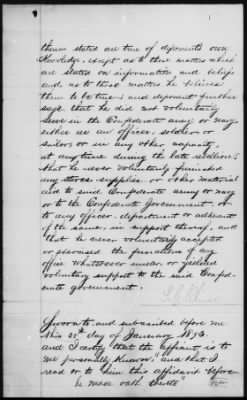 therein stated are true of deponents own
Knowledge, except as to those matters which
are stated on information and belief
and as to those matters he believes
them to be true; and deponent further
says that he did not voluntarily
serve in the Confederate army or navy
either as an officer, soldier or
sailor, or in any other capacity,
at any time during the late rebellion;
that he never voluntarily furnished
any stores, supplies or other material
aid to said Confederate army or navy
or to the Confederate Government, or
to any officer, department or adherent
of the same, in support thereof, and
that he never voluntarily accepted
or exercised the functions of any
office whatsoever under or yielded
voluntary support to the said Confed-
erate government.
Sworn to and subscribed before me
this day of January 1873.
and I certify that the affiant is to
me personally known, and that I
read over to him this affidavit before
he made oath thereto